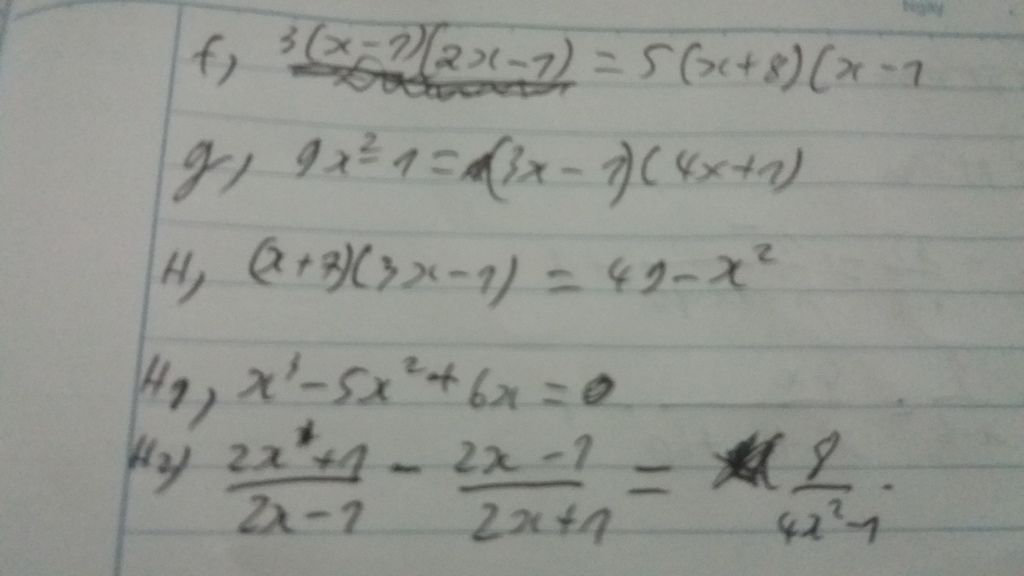 Ngày
f, 3(x-1)(2x-1) = 5(x+8)(x-1
g, 9x²-1 = (3x-1)(4x+1)
H, (x+7)(3x-1) = 49-x²
H1, x³-5x²+6x=0
H2) \frac{2x+1}{2x-1} - \frac{2x-1}{2x+1} = \frac{8}{4x²-1}.